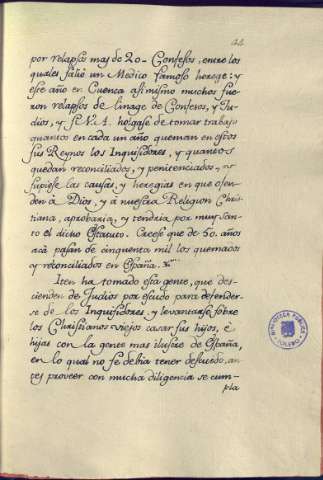 44
por relapsos mas de 20. Confesos, entre los
quales salió un Medico famoso herege: y
ese año en Cuenca asi mismo muchos fue-
ron relapsos de linage de Confesos, y Ju-
dios, y si V. A. holgase de tomar trabajo
quantos en cada un año queman en estos
sus Reynos los Inquisidores, y quantos
quedan reconciliados, y penitenciados, y
supiese las causas, y heregias en que ofen-
den à Dios, y à nuestra Religion Chris-
tiana, aprobaria, y tendria por muy san-
to el dicho Estatuto. Creese que de 50. años
acà pasan de cinquenta mil los quemados
y reconciliados en España.
Iten ha tomado esta gente, que des-
cienden de Judios por escudo para defender-
se de los Inquisidores, y levantarse sobre
los Christianos viejos casar sus hijos, è
hijas con la gente mas ilustre de España,
en lo qual no se debia tener descuido, an-
tes proveer con mucha diligencia se cum-
pla
BIBLIOTECA PUBLICA
TOLEDO